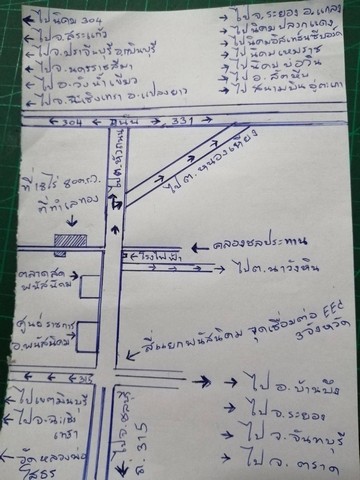 ไปนิคม 304
ไปจ.สระแก้ว
ไปจ.ปราจีนบุรี อ.กบินบุรี
ไปจ.นครราชสีมา
ไป อ.วังน้ำเขียว
ไปจ.ฉะเชิงเทรา อ.แปลงยาว
ไปจ.ระยอง อ.แกลง
ไปนิคม ปลวกแดง
ไปนิคมอิสเทิร์นซีบอร์ด
ไปนิคมเหมราช
ไปนิคม บ่อวิน
ไป อ. สัตหีบ
ไป สนามบิน อู่ตะเภา
304 ถนน 331
ไป ต. หัวถนน
ไป ต. หนองเหียง
ที่ 18 ไร่ 80 ตร.ว.
ที่ทำเลทอง
คลองชลประทาน
โรงไฟฟ้า
ไป ต. นาวังหิน
ตลาดสด
พนัสนิคม
ศูนย์ราชการ
อ.พนัสนิคม
สี่แยกพนัสนิคม จุดเชื่อมต่อ EEC
3 จังหวัด
315
ไปเขตมีนบุรี
ไปจ.ฉะเชิงเทรา
วัดหลวงพ่อ
โสธร
ไปจ.ชลบุรี
ส. 315
ไป อ. บ้านบึง
ไป จ. ระยอง
ไป จ. จันทบุรี
ไป จ. ตราด